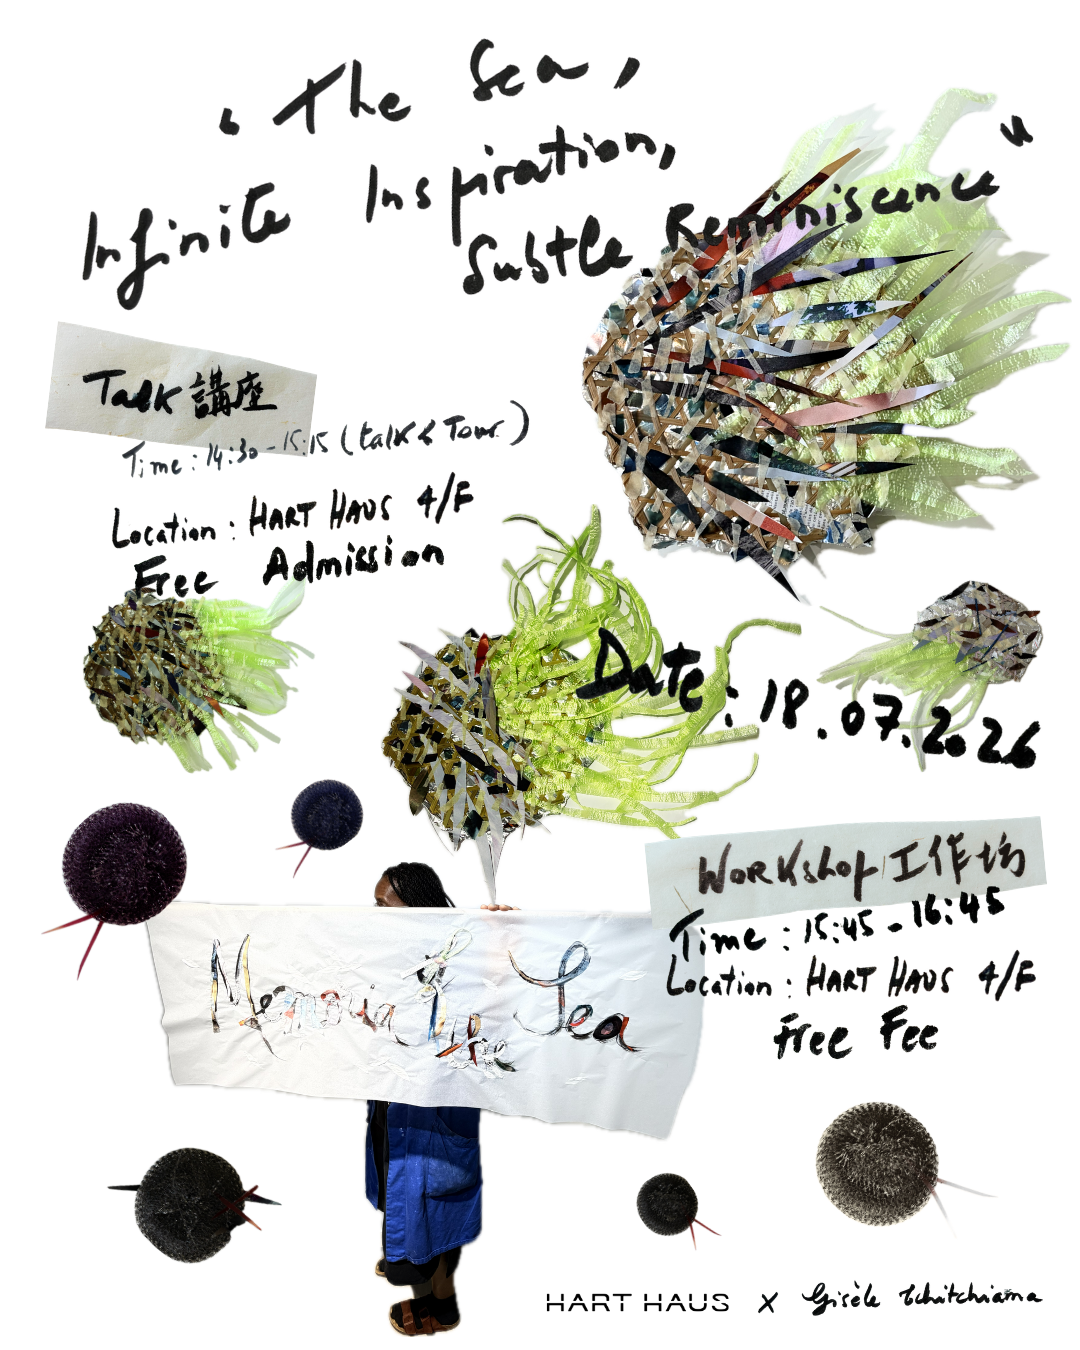 "The Sea,
Infinite Inspiration,
Subtle Reminiscence"
Talk 講座
Time: 14:30-15:15 (talk & Tour)
Location: HART HAUS 4/F
Free Admission
Date: 18.07.2026
Workshop 工作坊
Time: 15:45-16:45
Location: HART HAUS 4/F
Free Fee
Memoria
Sea
HART HAUS X Gisèle Tchitchiama